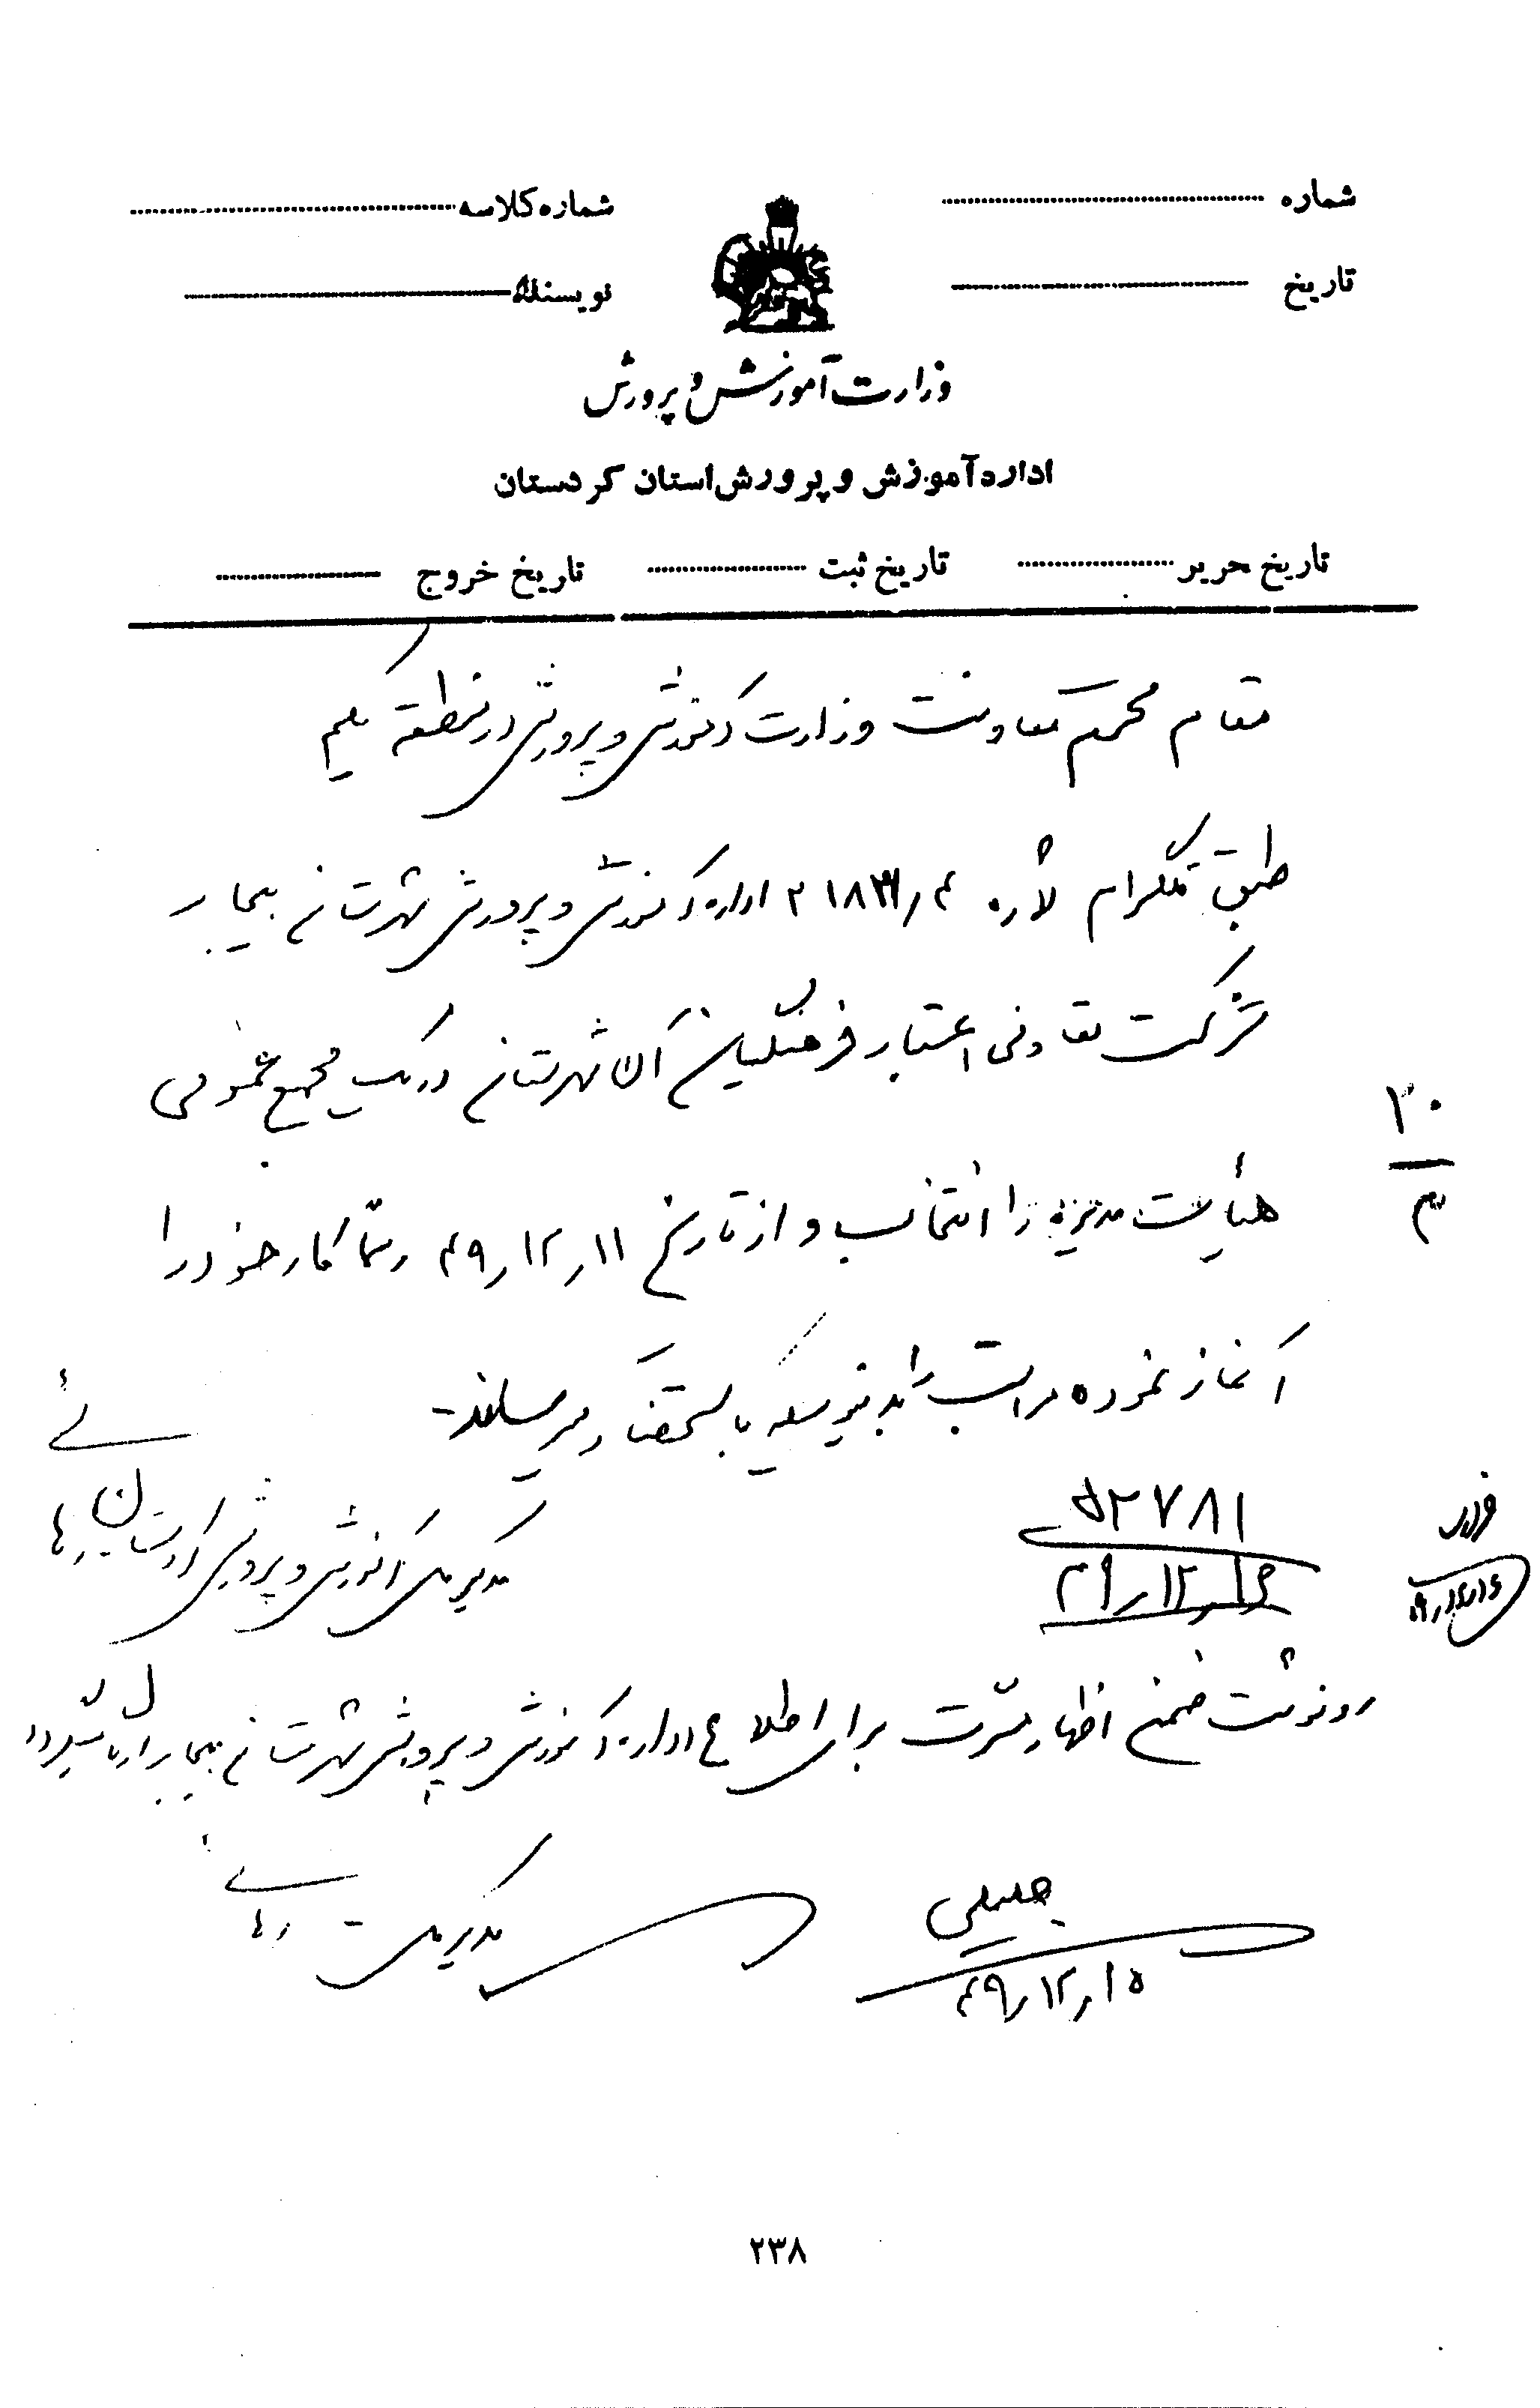 شماره
شماره کلاسه
تاریخ
نویسنده
وزارت آموزش و پرورش
اداره آموزش و پرورش استان کردستان
تاریخ تحریر
تاریخ ثبت
تاریخ خروج
مقام محترم معاونت وزارت آموزش و پرورش در منطقه یکم
طبق تلگرام شماره اداره آموزش و پرورش شهرستان بیجار
شرکت تعاونی اعتبار فرهنگیان آن شهرستان در یک مجمع عمومی
۳۰
م
هیأت مدیره را انتخاب و از تاریخ ۱۱ر۱۲ر۴۹ رسماً کار خود را
آغاز نموده مراتب را بدینوسیله باستحضار میرساند-
مدیر کل آموزش و پرورش کردستان
۵۲۷۸۱
۱۶ر۱۲ر۴۹
رونوشت ضمن اظهار مسرت برای اطلاع اداره آموزش و پرورش شهرستان بیجار ارسال میگردد
مدیر کل
جلیلی
۱۵ر۱۲ر۴۹
۲۳۸